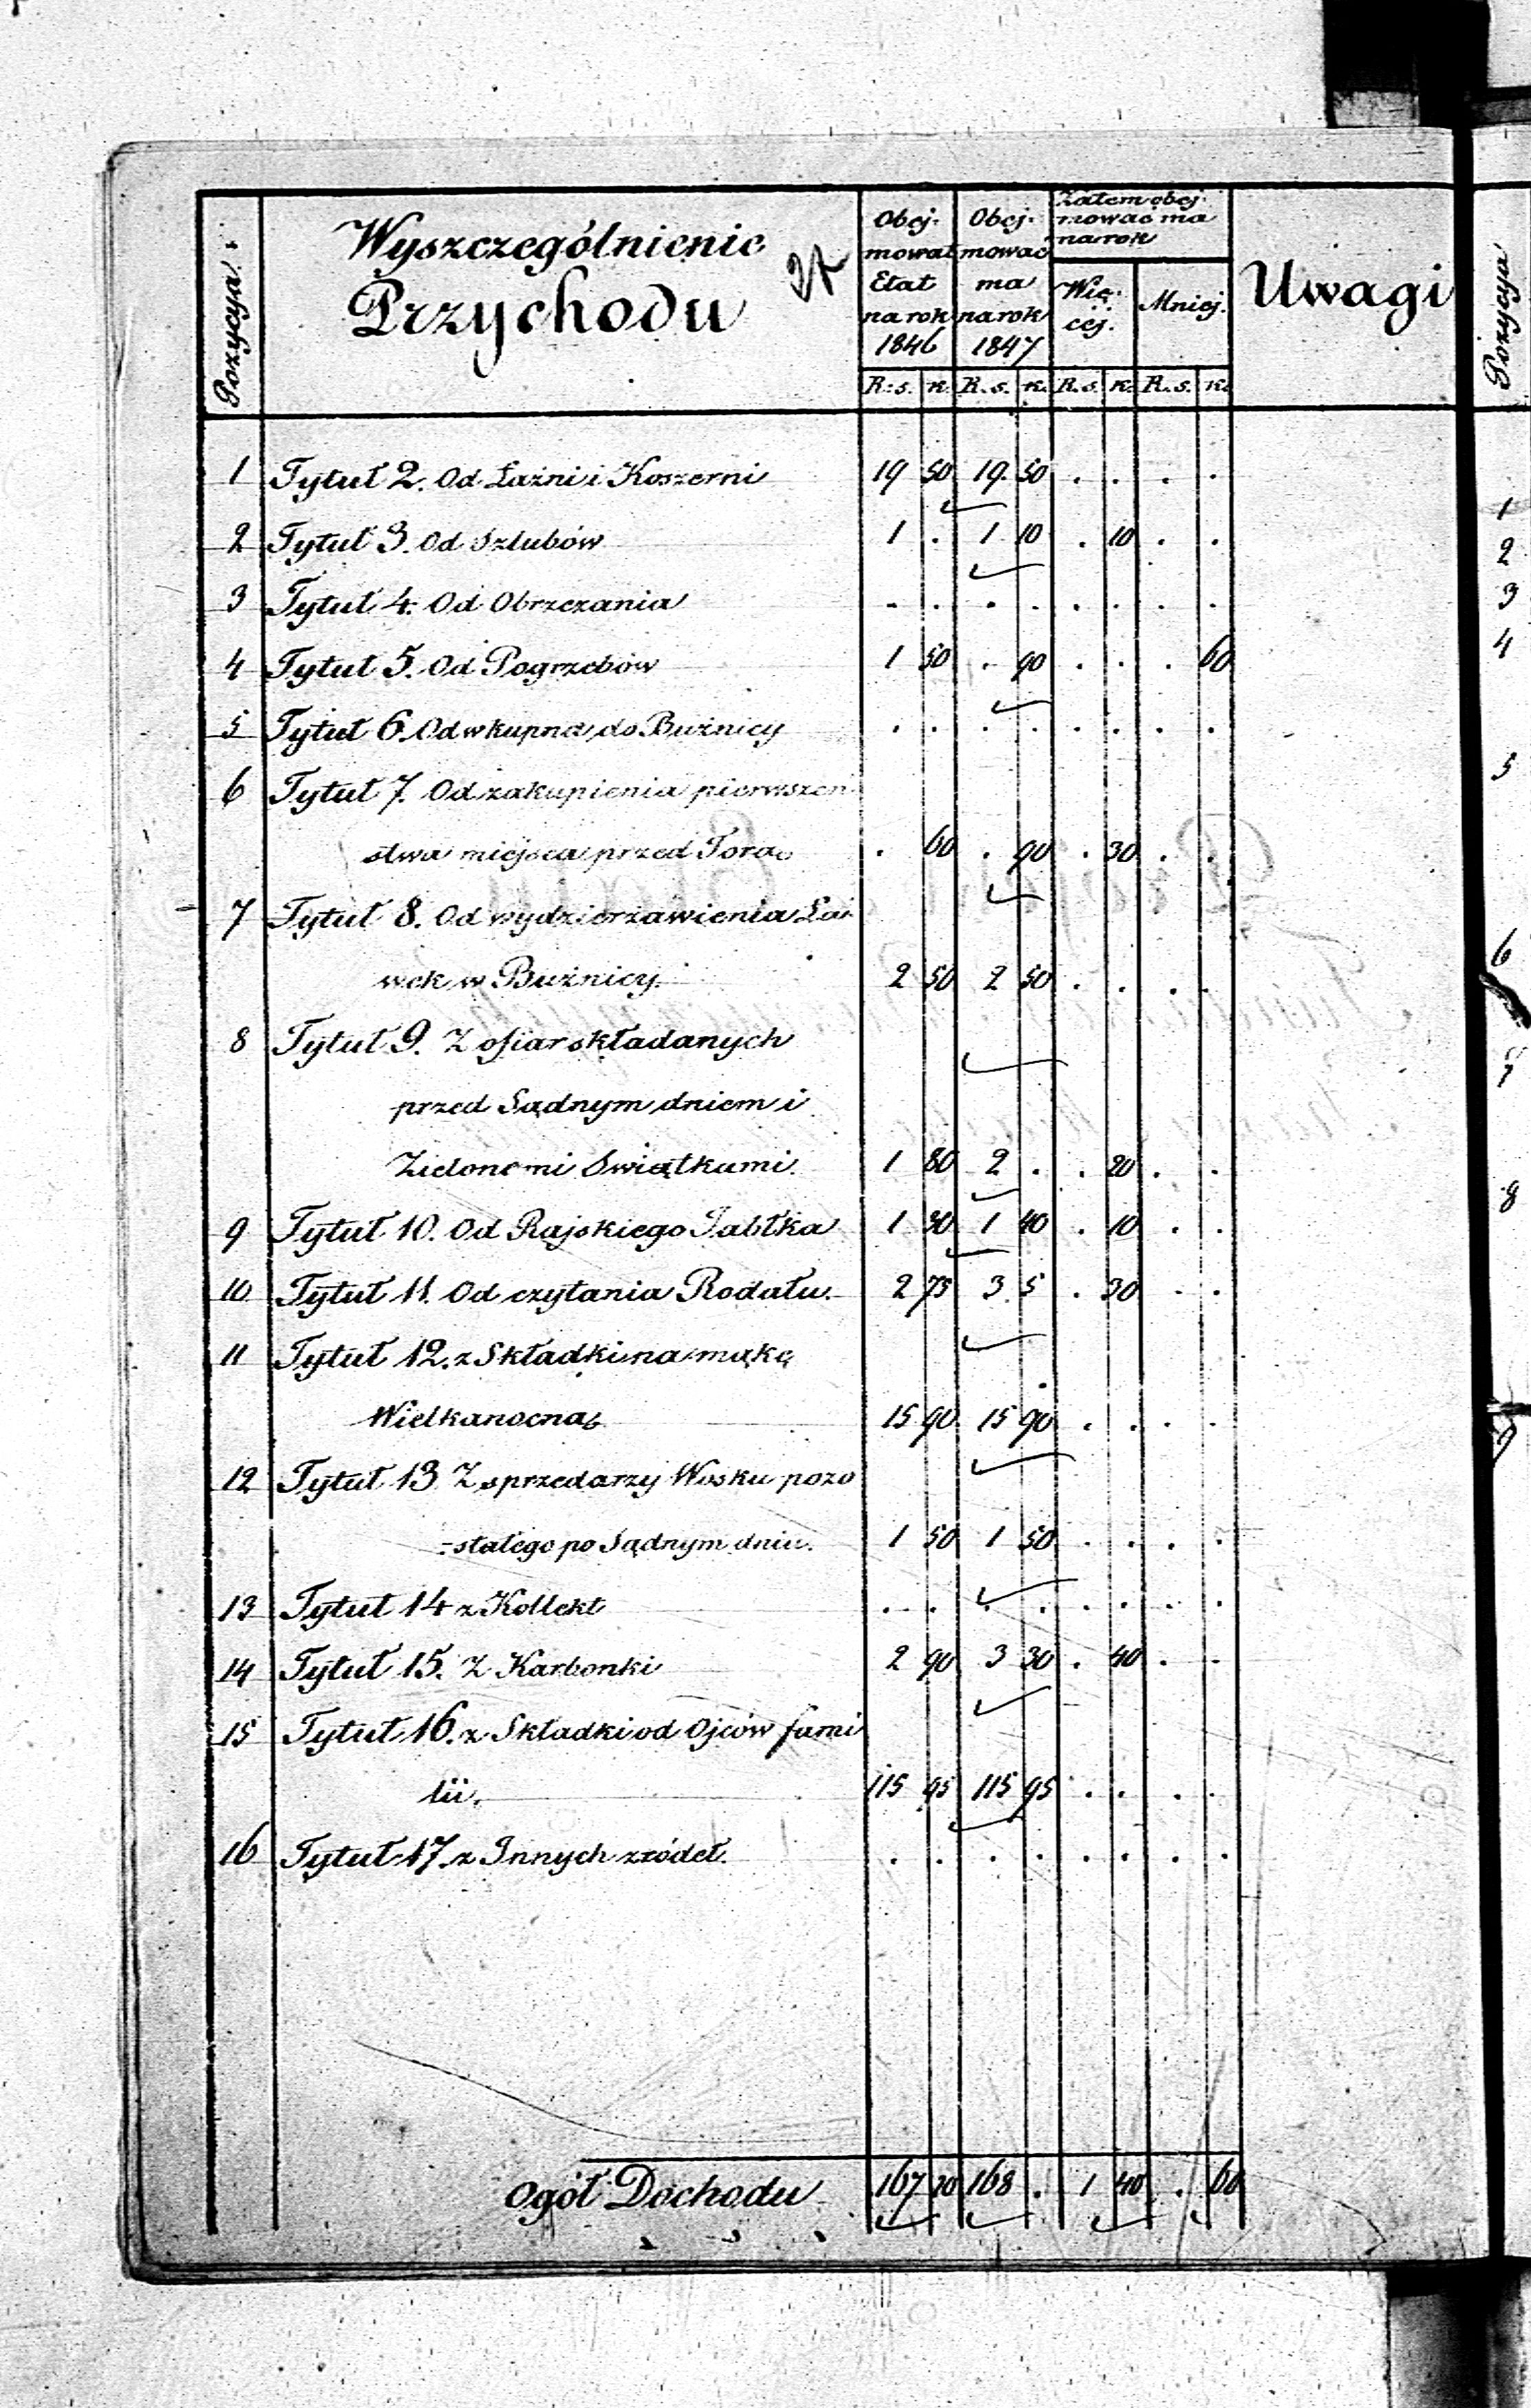 Pozycya.
Wyszczególnienie
Przychodu
Obej-
mował
Etat
na rok
1846
Obej-
mować
ma
na rok
1847
Zatem obej-
mować ma
na rok
Wię-
cej.
Mniej.
Uwagi
R. s. k. R. s. k. R. s. k. R. s. k.
1 Tytuł 2. Od Łaźni i Koszerni 19 50 19 50 . . . .
2 Tytuł 3. Od Szlubów 1 . 1 10 . 10 . .
3 Tytuł 4. Od Obrzezania . . . . . . . .
4 Tytuł 5. Od Pogrzebów 1 50 . 90 . . . 60
5 Tytuł 6. Od wkupna do Bużnicy . . . . . . . .
6 Tytuł 7. Od zakupienia pierwszeń
stwa miejsca przed Torą . 60 . 90 . 30 . .
7 Tytuł 8. Od wydzierzawienia Ła-
wek w Bużnicy. 2 50 2 50 . . . .
8 Tytuł 9. Z ofiar składanych
przed Sądnym dniem i
Zielonemi Swiątkami. 1 80 2 . . 20 . .
9 Tytuł 10. Od Rajskiego Jabłka 1 30 1 40 . 10 . .
10 Tytuł 11. Od czytania Rodału. 2 75 3 5 . 30 . .
11 Tytuł 12. z Składki na mąkę
Wielkanocną 15 90 15 90 . . . .
12 Tytuł 13 Z sprzedarzy Wosku pozo
-stałego po Sądnym dniu. 1 50 1 50 . . . .
13 Tytuł 14 z Kollekt . . . . . . . .
14 Tytuł 15. Z Karbonki 2 90 3 30 . 40 . .
15 Tytuł 16. z Składki od Ojców fami
lii. 115 95 115 95 . . . .
16 Tytuł 17. z Innych zródeł. . . . . . . . .
Ogół Dochodu 167 20 168 . 1 40 . 60
Pozycya
1
2
3
4
5
6
7
8
9